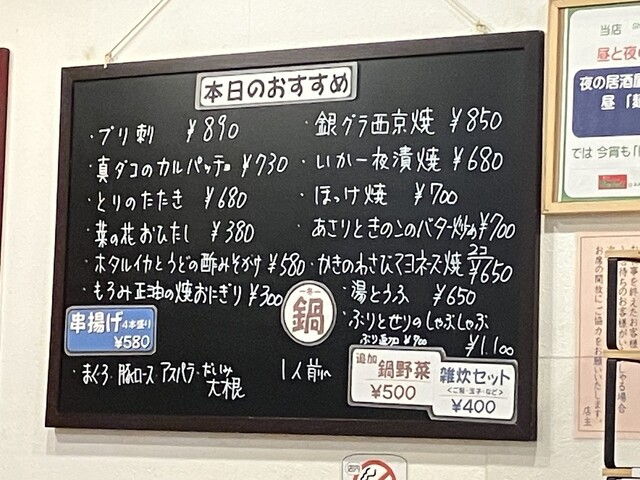 本日のおすすめ
・ブリ刺 ¥890
・真ダコのカルパッチョ ¥730
・とりのたたき ¥680
・菜の花おひたし ¥380
・ホタルイカとうどの酢みそがけ ¥580
・もろみ正油の焼おにぎり ¥300
串揚げ 4本盛り
¥580
・まぐろ・豚ロース・アスパラ・だいみ
大根
・銀ダラ西京焼 ¥850
・いか一夜漬焼 ¥680
・ほっけ焼 ¥700
・あさりときのこのバター炒め ¥700
・かきのわさびマヨネーズ焼 2コ ¥650
鍋
・湯とうふ ¥650
・ぶりとせりのしゃぶしゃぶ
¥1.100
¥700
1人前〜
追加
鍋野菜
¥500
雑炊セット
<ご飯・玉子・など>
¥400
当店
昼と夜
夜の居酒屋
昼「麺
では 今宵も「
お席の開放に ご協力をお願いいたします。
店主